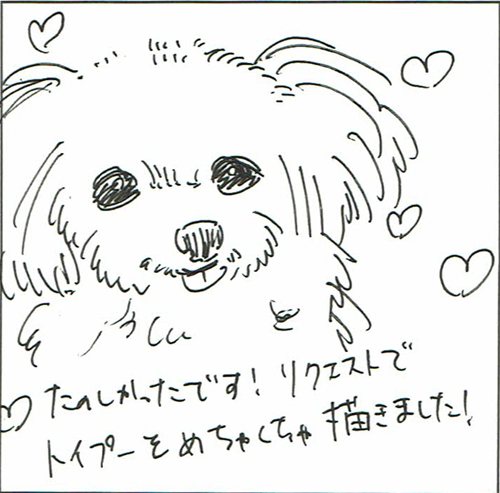 たのしかったです！リクエストで
トイプーをめちゃくちゃ描きました！